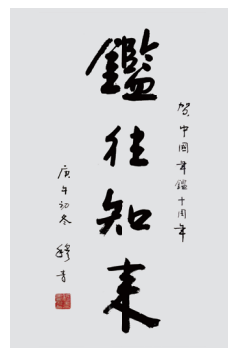 贺中国年鉴十周年
鑑往知来
庚午初冬
穆青